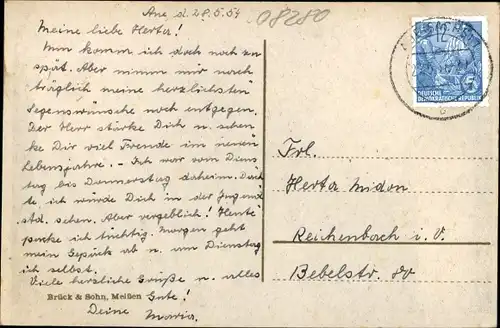 Aue d. 28.5.57
08280
Meine liebe Herta!
Nun komm ich doch noch zu
spät. Aber nimm mir noch
träglich meine herzlichsten
Segenswünsche noch entgegen.
Der Herr stärke Dich u. schen
ke Dir viel Freude im neuen
Lebensjahre. - Ich war vom Diens
tag bis Donnerstag daheim. Dach
te ich würde Dich in der Jugend
std. sehen. Aber vergeblich! Heute
packe ich tüchtig. Morgen geht
mein Gepäck ab u. am Dienstag
ich selbst.
Viele herzliche Grüße u. alles
Gute!
Deine Maria.
Brück & Sohn, Meißen
12
DEUTSCHE
DEMOKRATISCHE REPUBLIK
5
Frl.
Herta Midon
Reichenbach i. V.
Bebelstr.